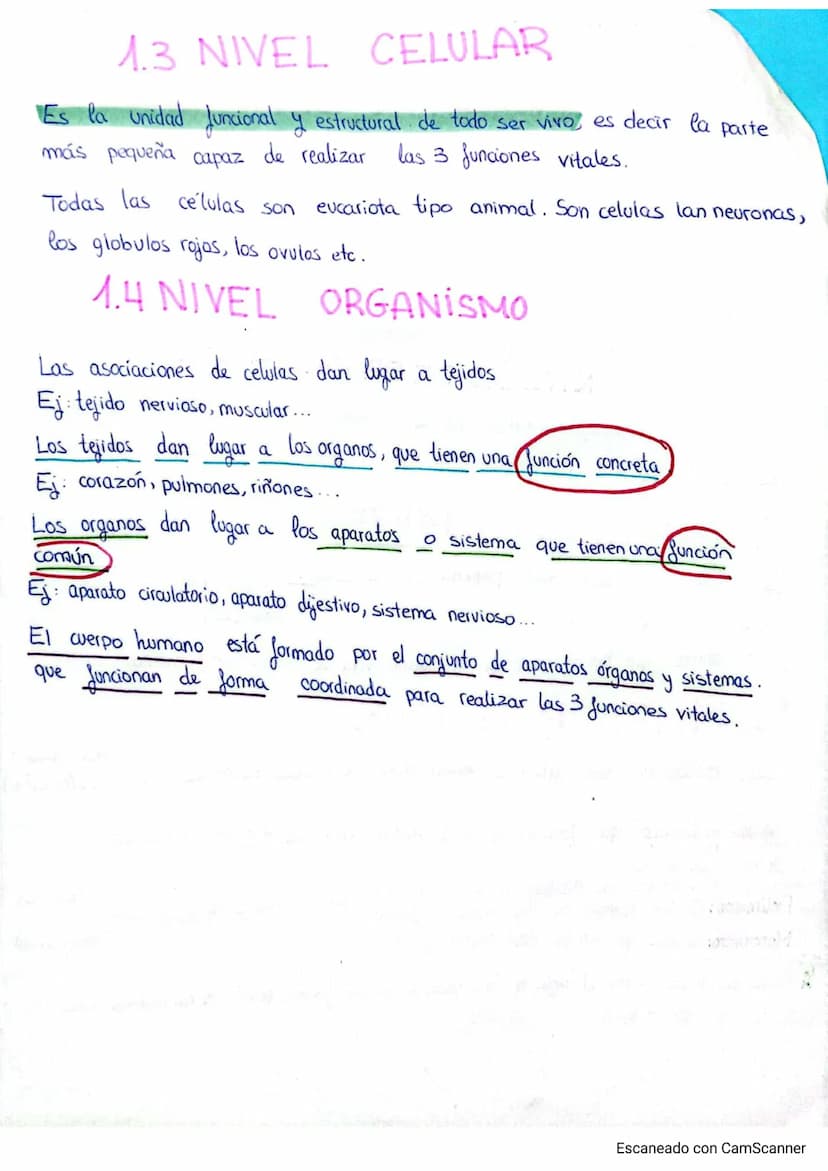 1.3 NIVEL CELULAR
Es la unidad funcional y estructural de todo ser vivo, es decir la parte
más pequeña capaz de realizar las 3 funciones vitales.
Todas las células son eucariota tipo animal. Son celulas lan neuronas,
los globulos rojos, los ovulos etc.
1.4 NIVEL ORGANİSMO
Las asociaciones de celulas dan lugar a tejidos
Ej: tejido nervioso, muscular...
Los tejidos dan lugar a los organos, que tienen una función concreta
Ej: corazón, pulmones, riñones...
Los organos dan lugar a los aparatos o sistema que tienen una función
común
Ej: aparato circulatorio, aparato dijestivo, sistema nervioso...
El cuerpo humano está formado por el conjunto de aparatos órganos y sistemas.
que funcionan de forma coordinada para realizar las 3 funciones vitales.
Escaneado con CamScanner